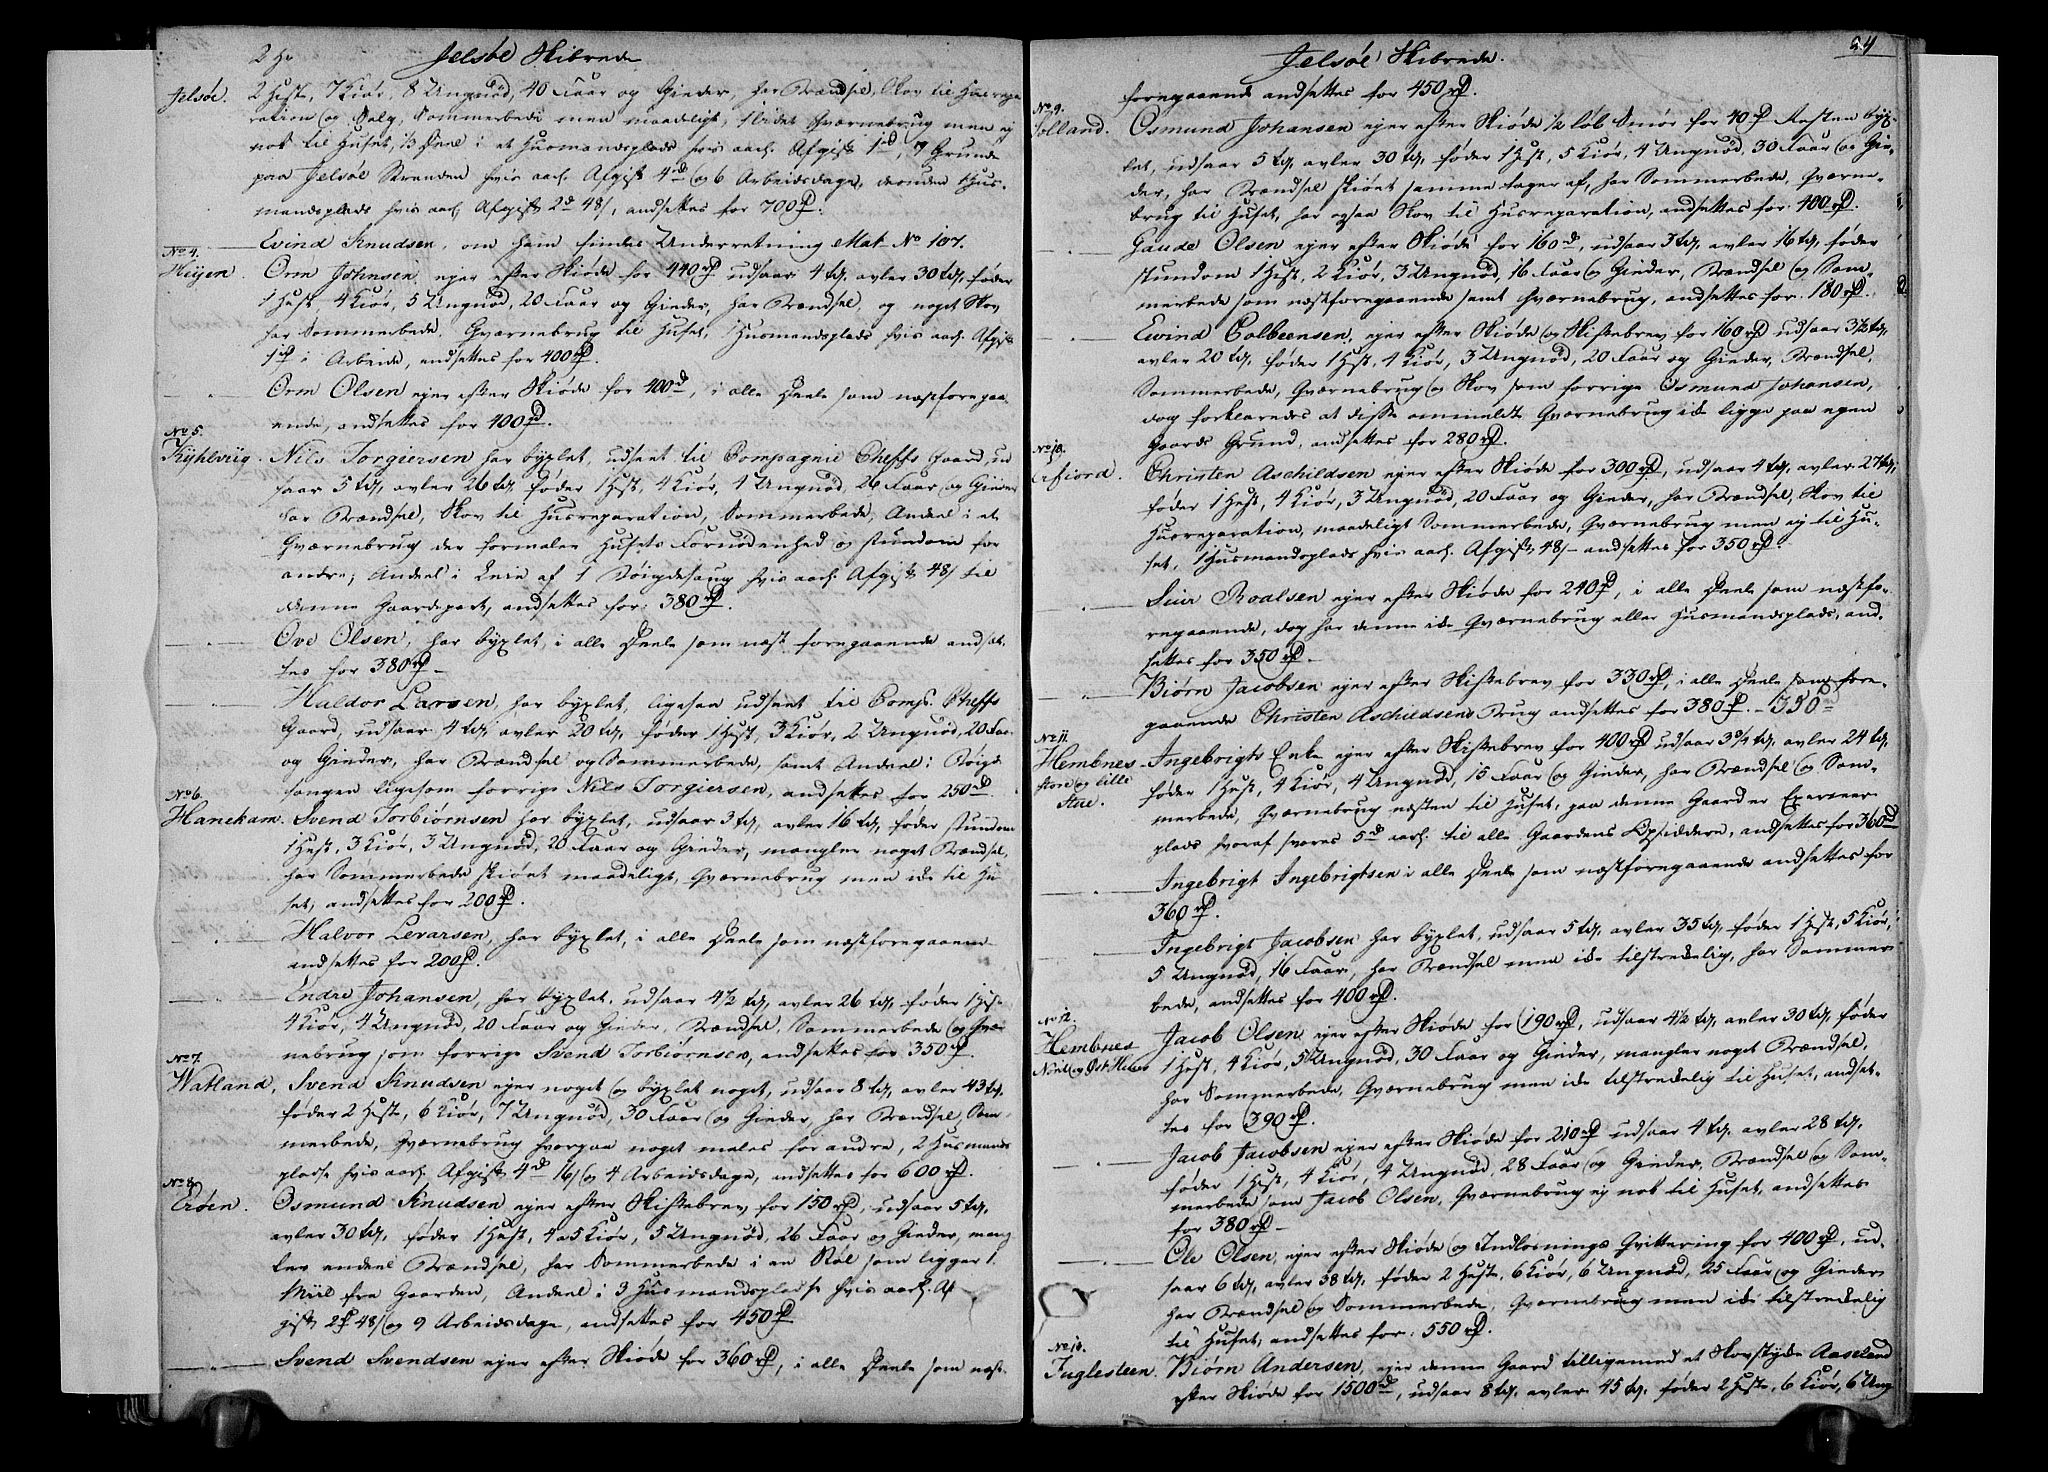 2 He
Jelsøe Skibrede
Jelsøe. 2 Heste, 7 Kiør, 8 Ungnöd, 40 Faar og Gieder, har Brændsel, Skov til Husrepa
ration og Salg, Sommerbede men maadeligt, 1 lidet Qværnebrug men ej
nok til Huset, ½ Deel i et Husmandsplads hvis aarl. Afgift 1rd, 7 Grunde
paa Jelsøe Stranden hvis aarl. Afgift 4rd og 6 Arbeidsdage, desuden Hus-
mandsplads hvis aarl. Afgift 2rd 48s, ansettes for 700rd.
Evind Knudsen, om ham findes Underretning Mat. No 107.
No 4.
Orm Johnsen, ejer efter Skiøde for 440rd, udsaar 4 td, avler 30 td, føder
1 Hest, 4 Kiør, 5 Ungnöd, 20 Faar og Gieder, har Brændsel, og noget Skov
har Sommerbede, Qværnebrug til Huset, 1 Husmandsplads hvis aarl. Afgift
1rd i Arbeide, ansettes for 400rd.
Orm Olsen ejer efter Skiøde for 400rd, i alle Deele som næstforegaa-
ende, ansettes for 400rd.
No 5.
Kyhlviig. Nils Torgiersen har byxlet, udseet til Compagnie Cheffs Gaard, ud
saar 5 td, avler 26 td, føder 1 Hest, 4 Kiør, 4 Ungnöd, 26 Faar og Gieder
har Brændsel, Skov til Husreparation, Sommerbede, Andeel i et
Qværnebrug der formaler Husets Fornödenhed og stundom for
andre, Andeel i Leie af 1 Bøigdesaug hvis aarl. Afgift 48s til
denne Gaardepart, ansettes for 380rd.
Ove Olsen, har byxlet, i alle Deele som næst foregaaende andsæt-
tes for 380rd
Haldor Larsen, har byxlet, ligesaa udseet til Comp. Cheffs
Gaard, udsaar 4 td, avler 20 td, føder 1 Hest, 3 Kiør, 2 Ungnöd, 20 Faar
og Gieder, har Brændsel og Sommerbede, samt Andeel i Bøigde
saugen ligesom forrige Nils Torgiersen, ansettes for 250rd.
No 6.
Hanekam. Svend Torbiørnsen har byxlet, udsaar 3 td, avler 16 td, føder stundom
1 Hest, 3 Kiør, 3 Ungnöd, 20 Faar og Gieder, mangler noget Brændsel,
har Sommerbede skiønt maadeligt, Qværnebrug men ikke til Hu
set, andsettes for 200rd.
Halvor Levarsen, har byxlet, i alle Deele som næstforegaaende
andsettes for 200rd.
Endre Johansen, har byxlet, udsaar 4½ td, avler 26 td, føder 1 Hest
4 Kiør, 4 Ungnöd, 20 Faar og Gieder, Brændsel, Sommerbede og Qvær
nebrug som forrige Svend Torbiørnsen, andsettes for 350rd.
No 7.
Watland, Svend Knudsen ejer noget og byxlet noget, udsaar 8 td, avler 43 td,
føder 2 Heste, 6 Kiør, 7 Ungnöd, 30 Faar og Gieder, har Brændsel, Som-
merbede, Qværnebrug hvorpaa noget males for andre, 2 Husmands
pladse hvis aarl. Afgift 4rd 16s og 4 Arbeidsdage, andsettes for 600rd.
No 8.
Erøen. Osmund Knudsen ejer efter Skiftebrev for 150rd, udsaar 5 td,
avler 30 td, føder 1 Hest, 4 a 5 Kiør, 5 Ungnöd, 26 Faar og Gieder, mang
ler endeel Brændsel, har Sommerbede i en Støl som ligger 1
Miil fra Gaarden, Andeel i 3 Husmandspladse hvis aarl. Af
gift 2rd 48s og 9 Arbeidsdage, andsettes for 450rd
Svend Svendsen ejer efter Skiøde for 360rd, i alle Deele som næst.
54
Jelsøe Skibrede.
foregaaende andsettes for 450rd.
No 9.
Tolland. Osmund Johansen ejer efter Skiøde ½ Løb Smør for 40rd Resten byx-
let, udsaar 5 td, avler 30 td, føder 1 Hest, 5 Kiør, 4 Ungnöd, 30 Faar og Gie-
der, har Brændsel skiønt samme tager af, har Sommerbede, Qværne-
brug til Huset, har ogsaa Skov til Husreparation, andsettes for 400rd.
Gaude Olsen ejer efter Skiøde for 160rd, udsaar 3 td, avler 16 td, føder
stundom 1 Hest, 2 Kiør, 3 Ungnöd, 16 Faar og Gieder, Brændsel og Som-
merbede som næstforegaaende samt Qværnebrug, andsettes for 180rd.
Evind Colbeensen, ejer efter Skiøde og Skiftebrev for 160rd udsaar 3½ td,
avler 20 td, føder 1 Hest, 4 Kiør, 3 Ungnöd, 20 Faar og Gieder, Brændsel,
Sommerbede, Qværnebrug og Skov som forrige Osmund Johansen,
dog forklaredes at disse ommeldte Qværnebrug ikke ligge paa egen
Gaards Grund, andsettes for 280rd.
No 10.
Erfiord. Christen Aschildsen ejer efter Skiøde for 300rd, udsaar 4 td, avler 27 td,
føder 1 Hest, 4 Kiør, 3 Ungnöd, 20 Faar og Gieder, har Brændsel, Skov til
Husreparation, maadeligt Sommerbede, Qværnebrug men ej til Hu-
set, 1 Husmandsplads hvis aarl. Afgift 48s andsettes for 350rd.
Siur Roalsen ejer efter Skiøde for 240rd, i alle Deele som næstfo-
regaaende, dog har denne ikke Qværnebrug eller Husmandsplads, and-
settes for 350rd
Biørn Jacobsen ejer efter Skiftebrev for 330rd, i alle Deele som fore-
gaaende Christen Aschildsens Brug andsettes for 380rd. 350
No 11.
Hembnes Ingebrigts Enke ejer efter Skiftebrev for 400rd udsaar 3¾ td, avler 24 td,
store og lille føder 1 Hest, 4 Kiør, 4 Ungnöd, 15 Faar og Gieder, har Brændsel og Som-
Stue. merbede, Qværnebrug næsten til Huset, paa denne Gaard er Exerceer
plads hvoraf svares 5rd aarl. til alle Gaardens Opsiddere, andsettes for 360rd
Ingebrigt Ingebrigtsen i alle Deele som næstforegaaende andsettes for
360rd.
Ingebrigt Jacobsen har byxlet, udsaar 5 td, avler 35 td, føder 1 Hest, 5 Kiør,
5 Ungnöd, 16 Faar, har Brændsel men ikke tilstrekelig, har Sommer
bede, andsettes for 400rd.
No 12.
Hembnes Jacob Olsen ejer efter Skiøde for 190rd, udsaar 4½ td, avler 30 td, føder
1 Hest, 4 Kiør, 5 Ungnöd, 30 Faar og Gieder, mangler noget Brændsel,
har Sommerbede, Qværnebrug men ikke tilstrekelig til Huset, andset-
tes for 390rd.
Jacob Jacobsen ejer efter Skiøde for 210rd udsaar 4 td, avler 28 td,
føder 1 Hest, 4 Kiør, 4 Ungnöd, 28 Faar og Gieder, Brændsel og Som-
merbede som Jacob Olsen, Qværnebrug ej nok til Huset, andsettes
for 380rd
Ole Olsen, ejer efter Skiøde og Indløsnings Qvittering for 400rd, ud-
saar 6 td, avler 38 td, føder 2 Heste, 6 Kiør, 6 Ungnöd, 25 Faar og Gieder
har Brændsel og Sommerbede, Qværnebrug men ikke tilstrekelig
til Huset, andsettes for 550rd.
No 13.
Fuglesteen. Biørn Andersen, ejer denne Gaard tilligemed et Skovstykke Aaseland
efter Skiøde for 1500rd, udsaar 8 td, avler 45 td, føder 2 Heste, 6 Kiør, 6 Ung